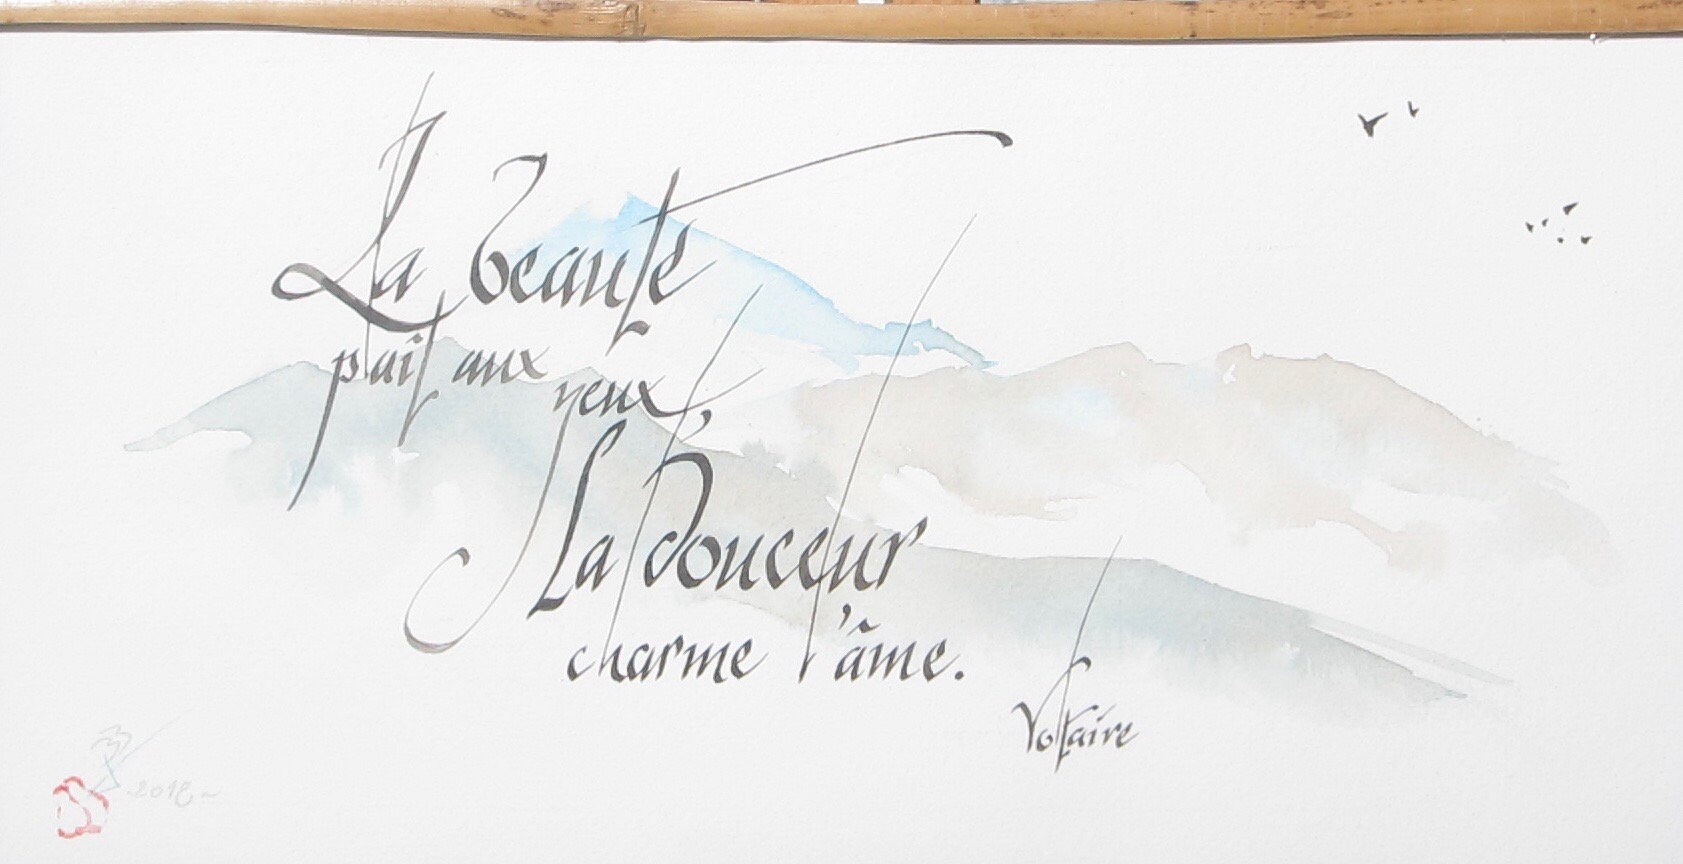 La beauté
plait aux
yeux,
La douceur
charme l'âme.
Voltaire
2018